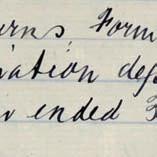 urns. Form
iation def
r ended F